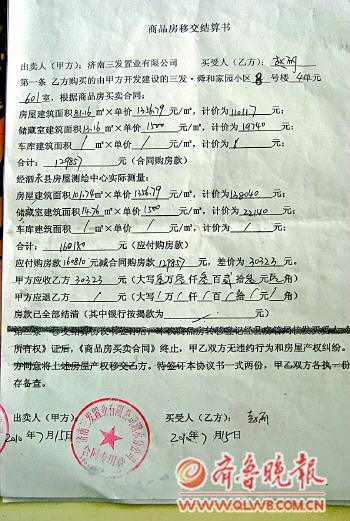 商品房移交结算书
出卖人（甲方）：济南三发置业有限公司 买受人（乙方）：
第一条 乙方购买的由甲方开发建设的三发·舜和家园小区8号楼4单元
601室，根据商品房买卖合同：
房屋建筑面积81.16m²×单价1356.79元/m²，计价为110117元；
储藏室建筑面积13.16m²×单价1500元/m²，计价为19740元；
车库建筑面积/m²×单价/元/m²，计价为/元；
合计：129857元（合同购房款）
经泗水县房屋测绘中心实际测量：
房屋建筑面积101.74m²×单价1356.79元/m²，计价为138040元；
储藏室建筑面积14.76m²×单价1500元/m²，计价为22140元；
车库建筑面积/m²×单价/元/m²，计价为/元；
合计：160180元（应付购房款）
应付购房款160180元减合同购房款129857元，差价为30323元。
甲方应收乙方30323元（大写叁万零仟叁百贰拾叁元零角）
甲方应退乙方/元（大写/万/仟/百/拾/元/角）
房款已全部结清（其中银行按揭款为/）
所有权》证后，《商品房买卖合同》终止，甲乙双方无违约行为和房屋产权纠纷。
方同意将上述房屋产权移交乙方。特签订本协议书一式两份，甲乙双方各执一份
存备查。
出卖人（甲方）： 买受人（乙方）：
2010年7月15日 2010年7月15日
济南三发置业有限公司泗水分公司
合同专用章
齐鲁晚报
WWW.QLWB.COM.CN